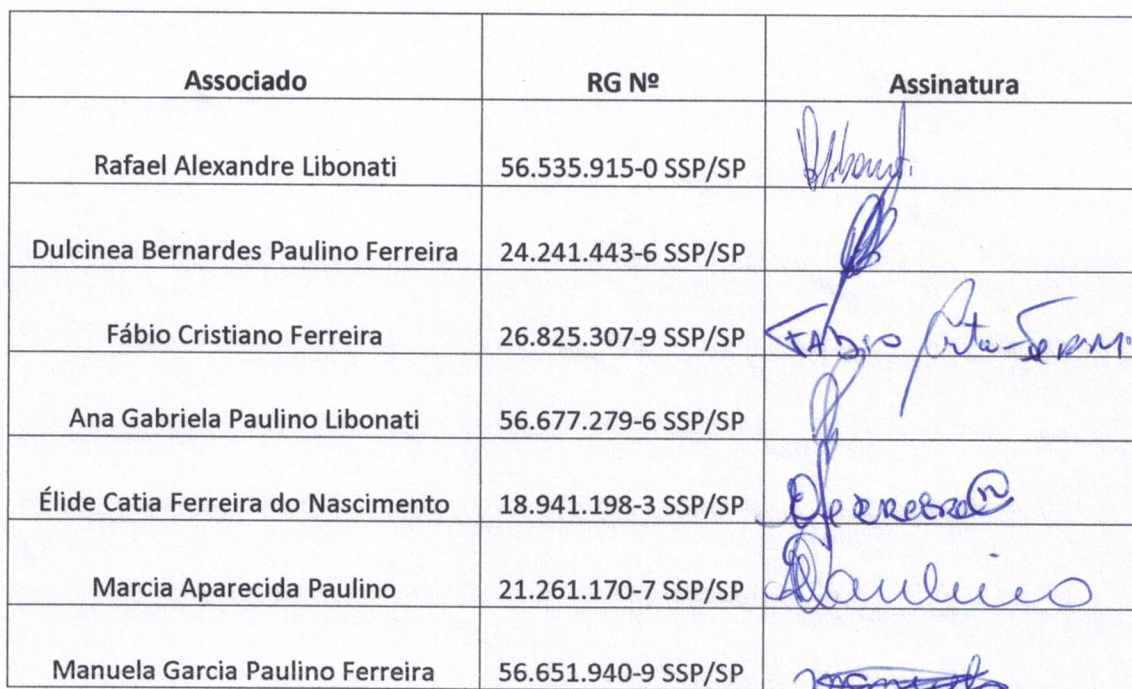 Associado RG Nº Assinatura
Rafael Alexandre Libonati 56.535.915-0 SSP/SP
Dulcinea Bernardes Paulino Ferreira 24.241.443-6 SSP/SP
Fábio Cristiano Ferreira 26.825.307-9 SSP/SP FÁBIO
Ana Gabriela Paulino Libonati 56.677.279-6 SSP/SP
Élide Catia Ferreira do Nascimento 18.941.198-3 SSP/SP
Marcia Aparecida Paulino 21.261.170-7 SSP/SP Paulino
Manuela Garcia Paulino Ferreira 56.651.940-9 SSP/SP